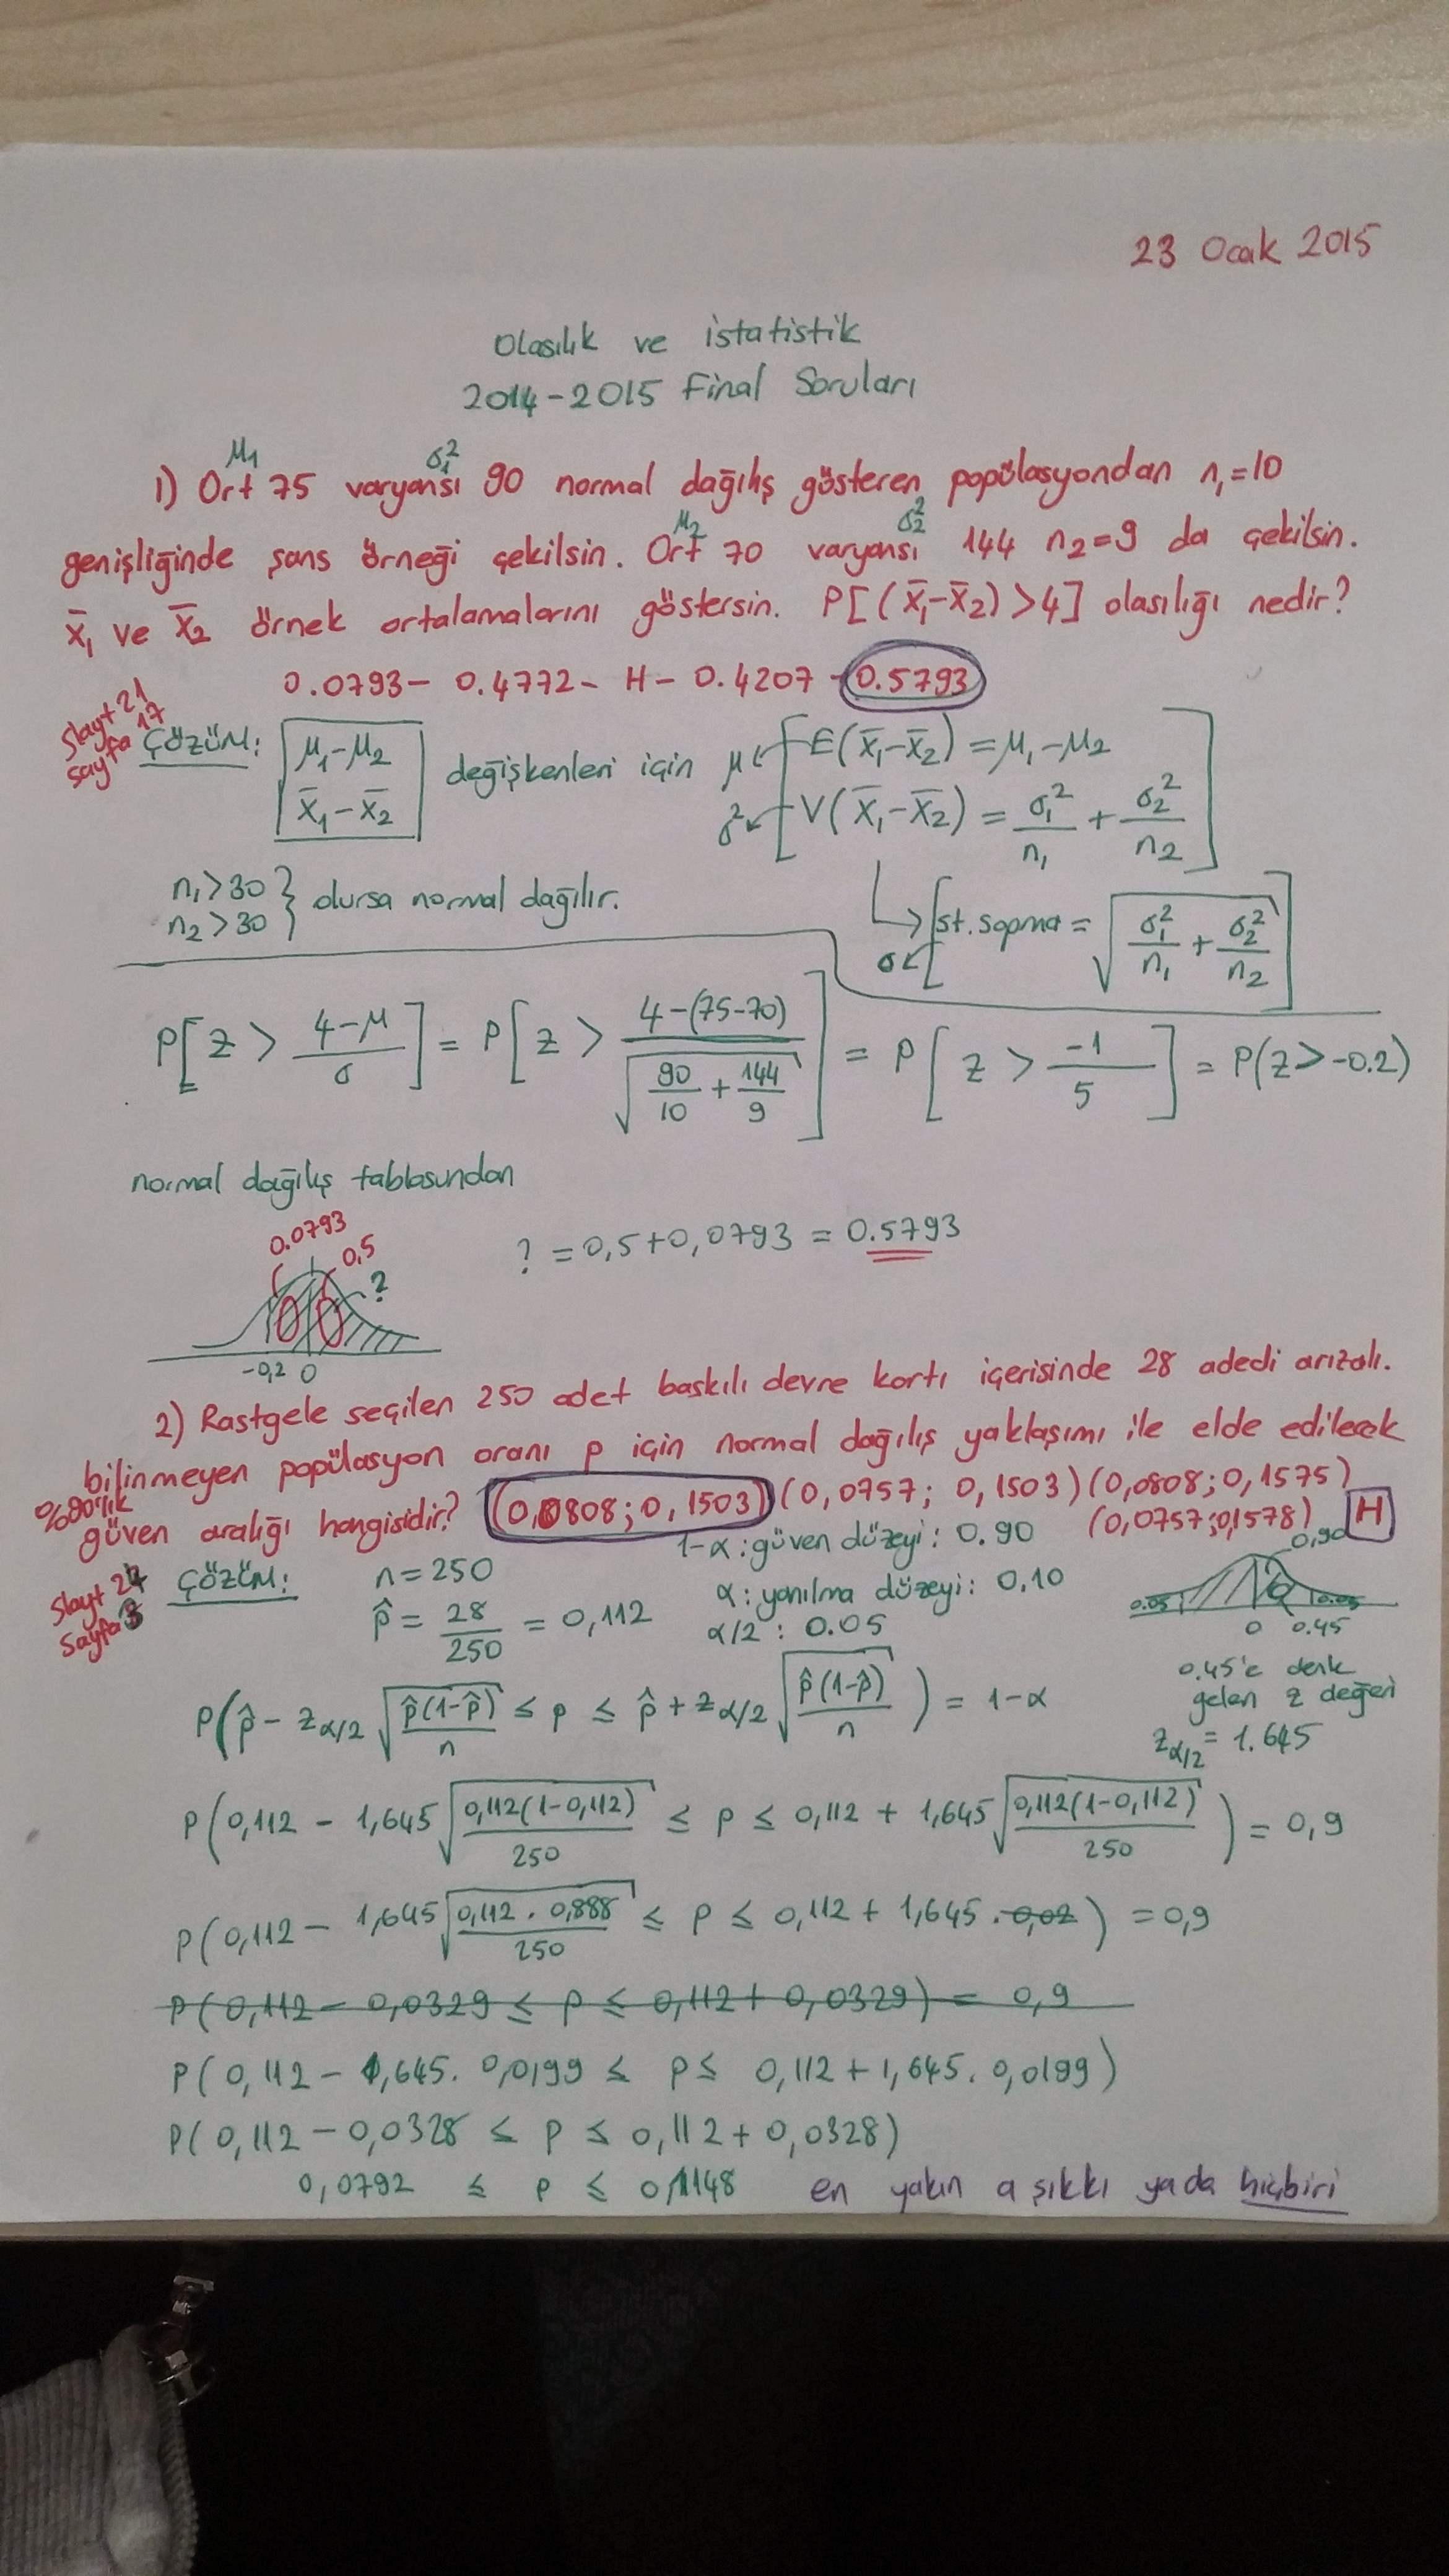 23 Ocak 2015
Olasılık ve istatistik
2014-2015 Final Soruları
μ1 σ1²
1) Ort 75 varyansı 90 normal dağılış gösteren popülasyondan n1=10
μ2 σ2²
genişliğinde şans örneği çekilsin. Ort 70 varyansı 144 n2=9 da çekilsin.
x̄1 ve x̄2 örnek ortalamalarını göstersin. P[(x̄1-x̄2)>4] olasılığı nedir?
0.0793- 0.4772- H- 0.4207 - 0.5793
Slayt 21
Sayfa 17
ÇÖZÜM: μ1-μ2 x̄1-x̄2 değişkenleri için μ E(x̄1-x̄2) = μ1-μ2
σ² V(x̄1-x̄2) = σ1²/n1 + σ2²/n2
n1>30
n2>30 } olursa normal dağılır.
σ st. sapma = √(σ1²/n1 + σ2²/n2)
P[z > (4-μ)/σ] = P[z > (4-(75-70))/√(90/10 + 144/9)] = P[z > -1/5] = P(z>-0.2)
normal dağılış tablosundan
0.0793
0,5
?
-0,2 0
? = 0,5+0,0793 = 0.5793
2) Rastgele seçilen 250 adet baskılı devre kartı içerisinde 28 adedi arızalı.
bilinmeyen popülasyon oranı p için normal dağılış yaklaşımı ile elde edilecek
%90'lık
güven aralığı hangisidir? (0,0808;0,1503) (0,0757; 0,1503) (0,0808;0,1575)
(0,0757;0,1578) H
Slayt 24
Sayfa 3
ÇÖZÜM: n=250
p̂ = 28/250 = 0,112
1-α : güven düzeyi: 0.90
α: yanılma düzeyi: 0,10
α/2 : 0.05
0,90
0.05 0.05
0 0.45
0.45'e denk
gelen z değeri
zα/2 = 1.645
P(p̂ - zα/2 √(p̂(1-p̂)/n) ≤ p ≤ p̂ + zα/2 √(p̂(1-p̂)/n)) = 1-α
P(0,112 - 1,645 √(0,112(1-0,112)/250) ≤ p ≤ 0,112 + 1,645 √(0,112(1-0,112)/250)) = 0,9
P(0,112 - 1,645 √(0,112 . 0,888/250) ≤ p ≤ 0,112 + 1,645 . 0,02) = 0,9
P(0,112 - 0,0329 ≤ p ≤ 0,112 + 0,0329) = 0,9
P(0,112 - 1,645. 0,0199 ≤ p ≤ 0,112 + 1,645. 0,0199)
P(0,112 - 0,0328 ≤ p ≤ 0,112 + 0,0328)
0,0792 ≤ p ≤ 0,1148 en yakın a şıkkı yada hiçbiri